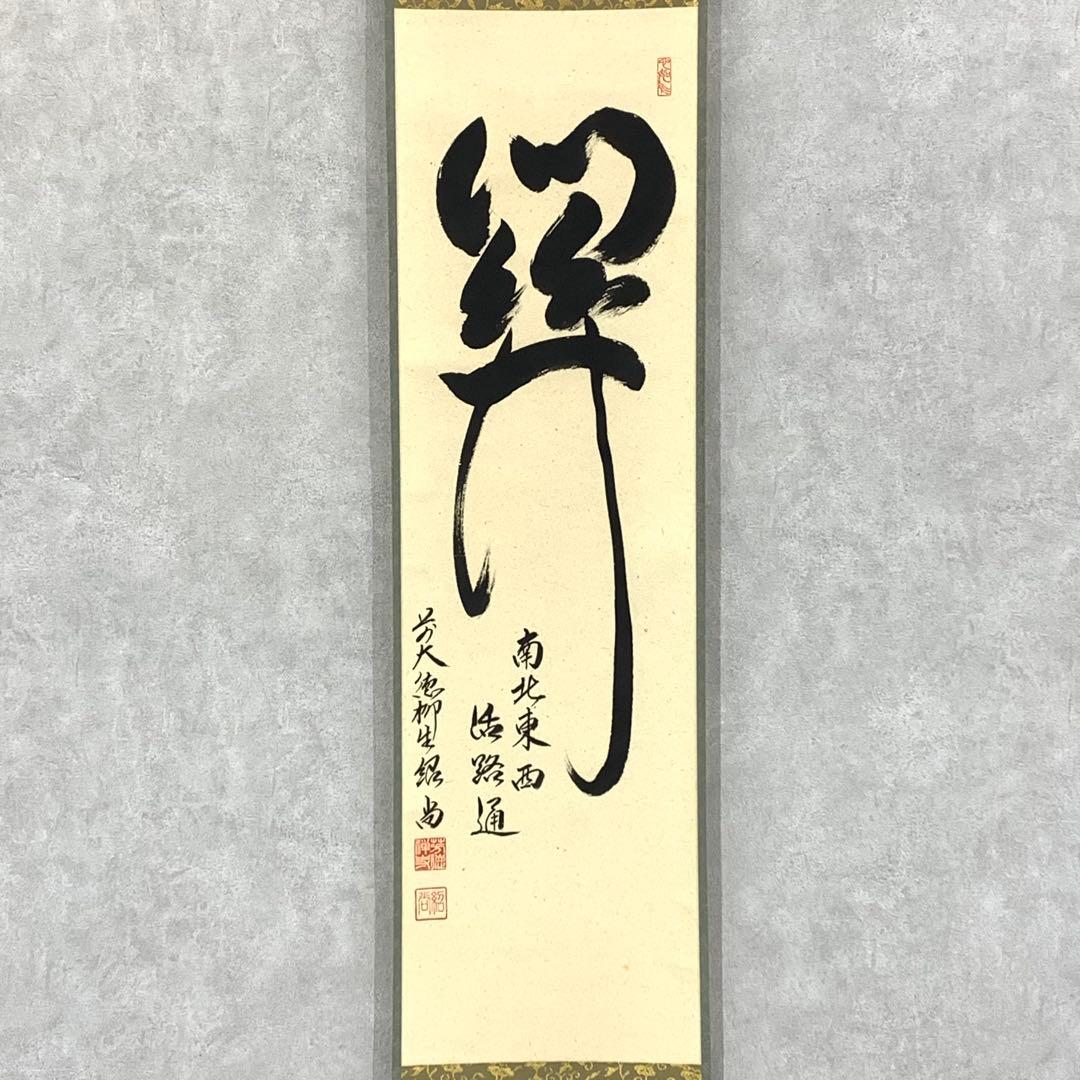 關
南北東西
活路通
前大徳柳生紹尚